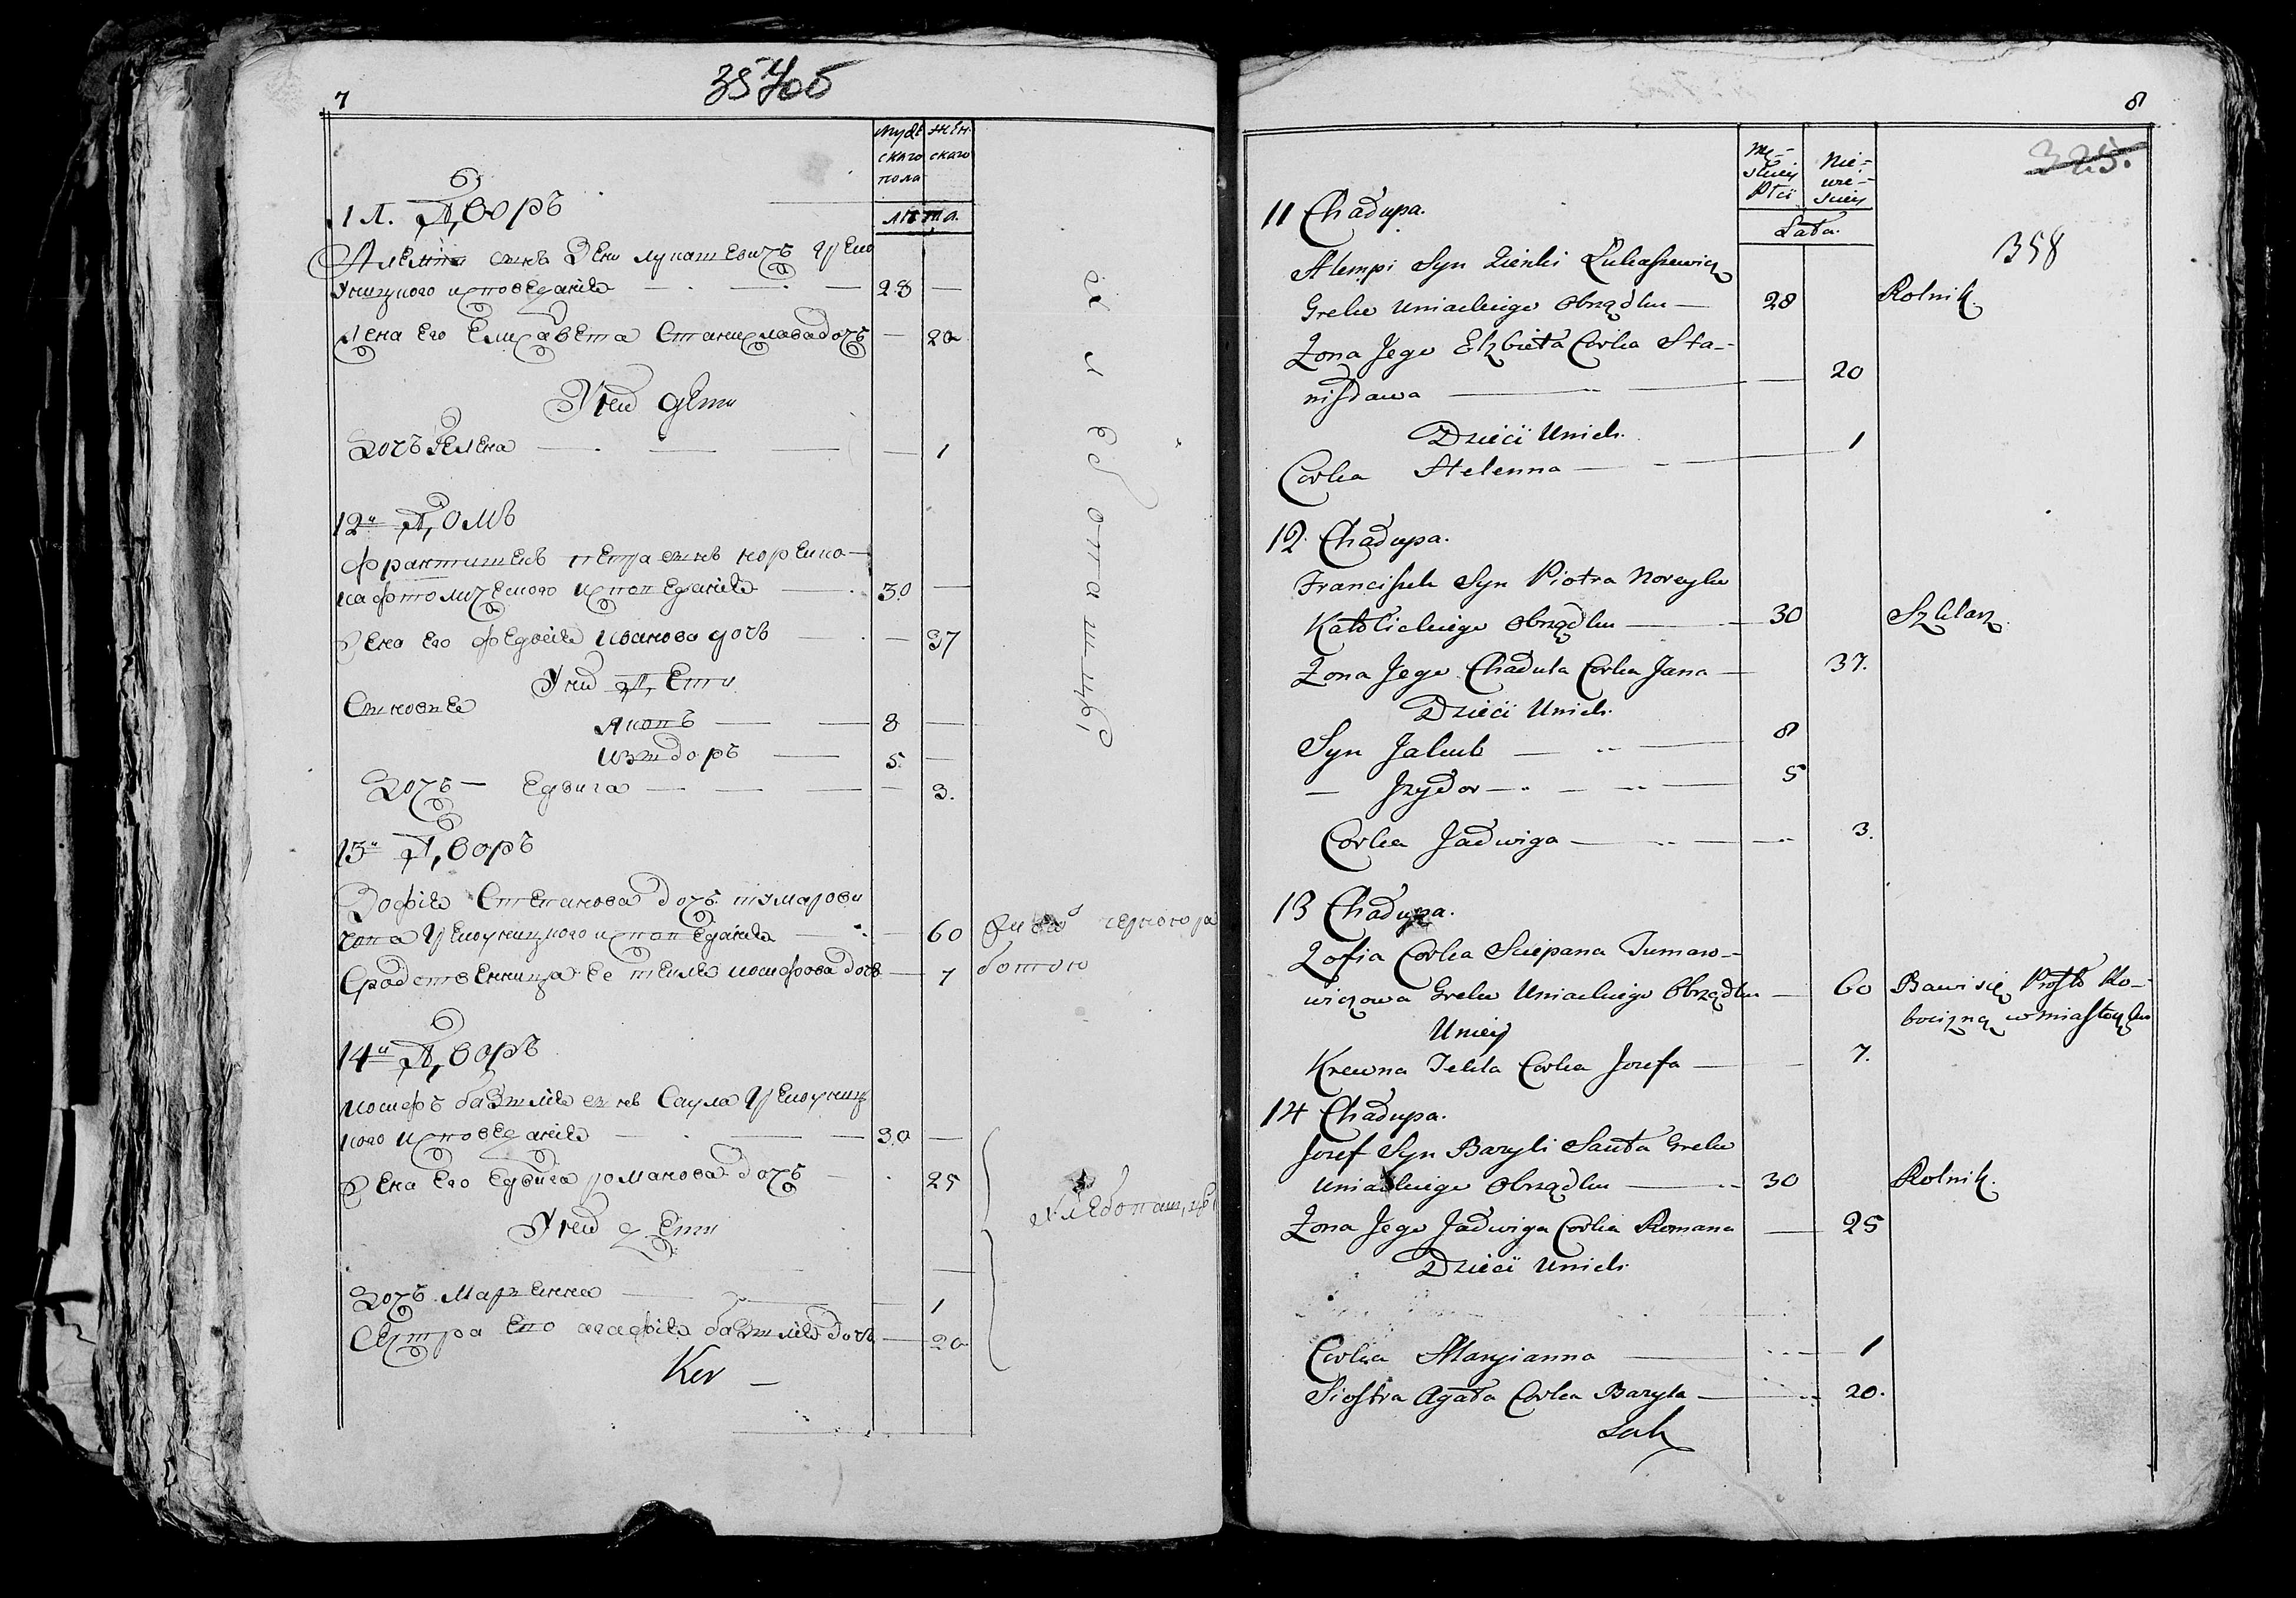 7
Муже женскаго
скаго
пола
лѣта.
11. Дворъ
сынъ Зени лукашевичъ Греко
Уницкого исповеданія — 28 —
Жена Его Елисавета Станиславадочь — 20
У нихъ дети
Дочь Гелена — — 1
12й Домъ
Францишекъ петра сынъ норейко
католического исповеданія — 30 —
Жена Его Иванова дочь — 37
У нихъ Дети
Сыновья
Якопъ — 8 —
Изыдоръ — 5 —
Дочь — Едвига — 3.
13й Дворъ
Зофія Степанова дочь тумарови
чова Грекоуницкого исповеданія — 60 черною ра
Сродственница Ее текля иосифова дочь — 7 ботою
14й Дворъ
Иосифъ базилія сынъ Саула Грекоуниц
кого исповеданія — 30 —
Жена Его Едвига романова дочь — 25
Хлебопашецъ
У нихъ дети
Дочь Марьянна — 1
Сестра Его агафія базилія дочь — 20
8
325.
358
Męskiey Płci
Niewieściey
Lata.
11 Chałupa.
Syn Zieńki Łukaszewicz
Greko Uniackiego Obrządku — 28 Rolnik.
Żona Jego Elżbieta Corka Sta-
nisława — 20
Dzieci Unich.
Corka Helenna — 1
12. Chałupa.
Franciszek Syn Piotra Noreyko
Katolickiego Obrządku — 30 Szklarz.
Żona Jego Corka Jana — 37.
Dzieci Unich.
Syn Jakub — 8
— Jzydor — 5
Corka Jadwiga — 3.
13 Chałupa.
Zofia Corka Sciepana Tumaro-
wiczowa Greko Uniackiego Obrządku — 60 Bawi się Prostą Ro-
bocizną w miasteczku
Uniey
Krewna Tekla Corka Jozefa — 7.
14 Chałupa.
Jozef Syn Bazyli Sauła Greko
Uniackiego Obrządku — 30 Rolnik.
Żona Jego Jadwiga Corka Romana — 25
Dzieci Unich.
Corka Maryianna — 1
Siostra Agata Corka Bazyla — 20.